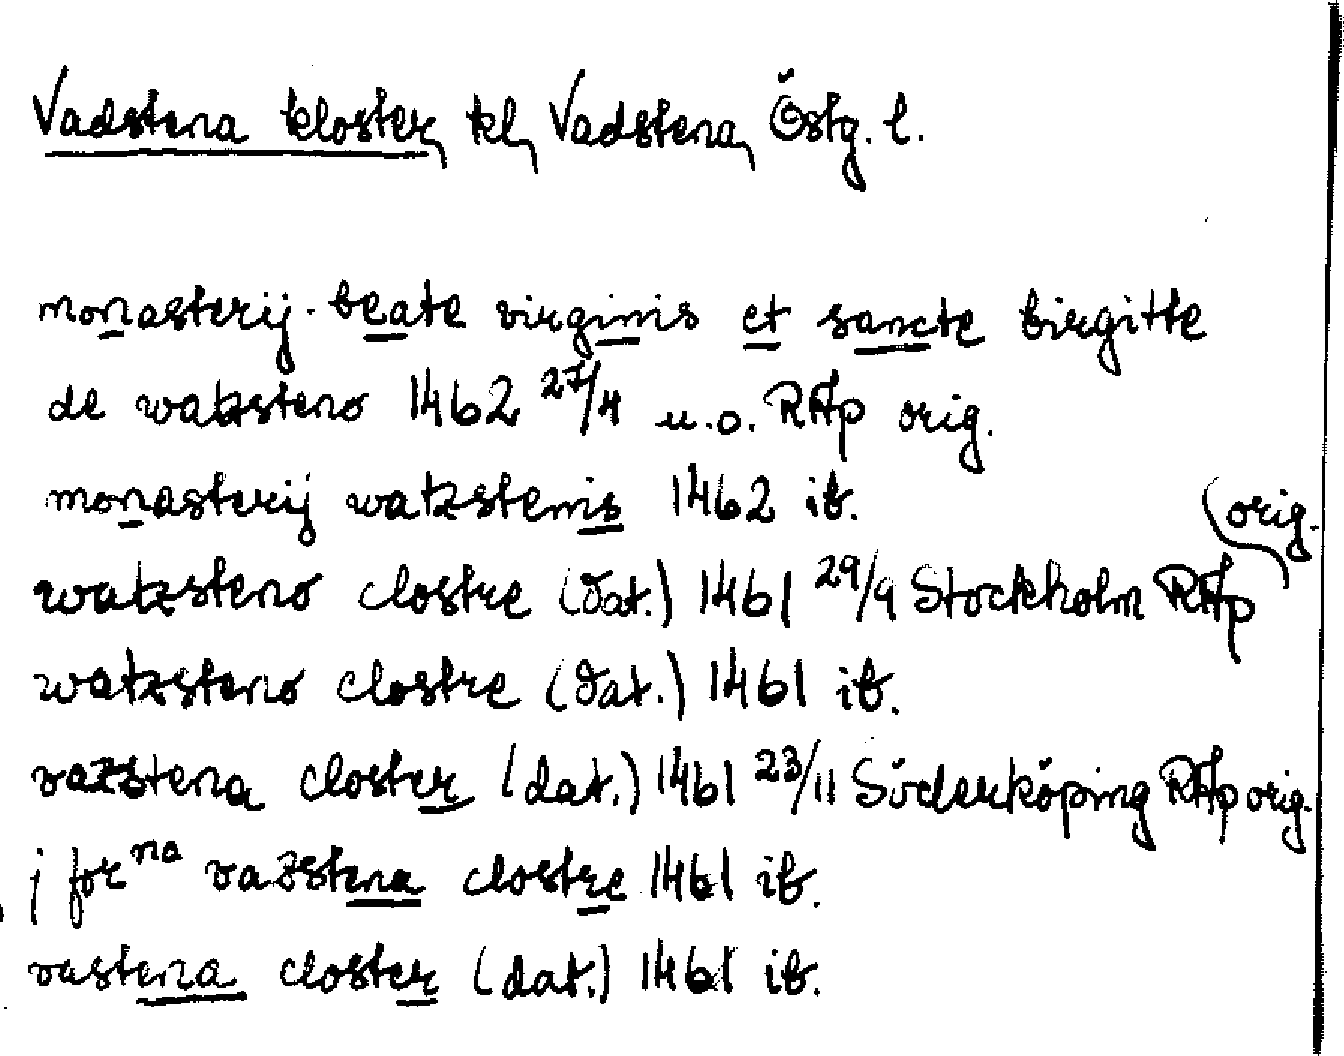 Vadstena kloster, kl, Vadstena, Östg. l.
monasterij beate virginis et sancte birgitte
de watzsteno 1462 27/4 u.o. RAp orig.
monasterij watzstenis 1462 ib.
watzsteno clostre (dat.) 1461 29/9 Stockholm RAp orig.
watzsteno clostre (dat.) 1461 ib.
vazstena closter (dat.) 1461 23/11 Söderköping RAp orig.
j forna vazstena clostre 1461 ib.
vastena closter (dat.) 1461 ib.